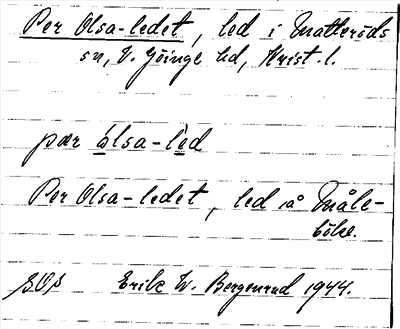 Per Olsa-ledet, led i Matteröds
sn, V. Göinge hd, Krist. l.
pær ólsa-lèd
Per Olsa-ledet, led å Måle-
bölse.
SOS Erik W. Bergenrud 1944.